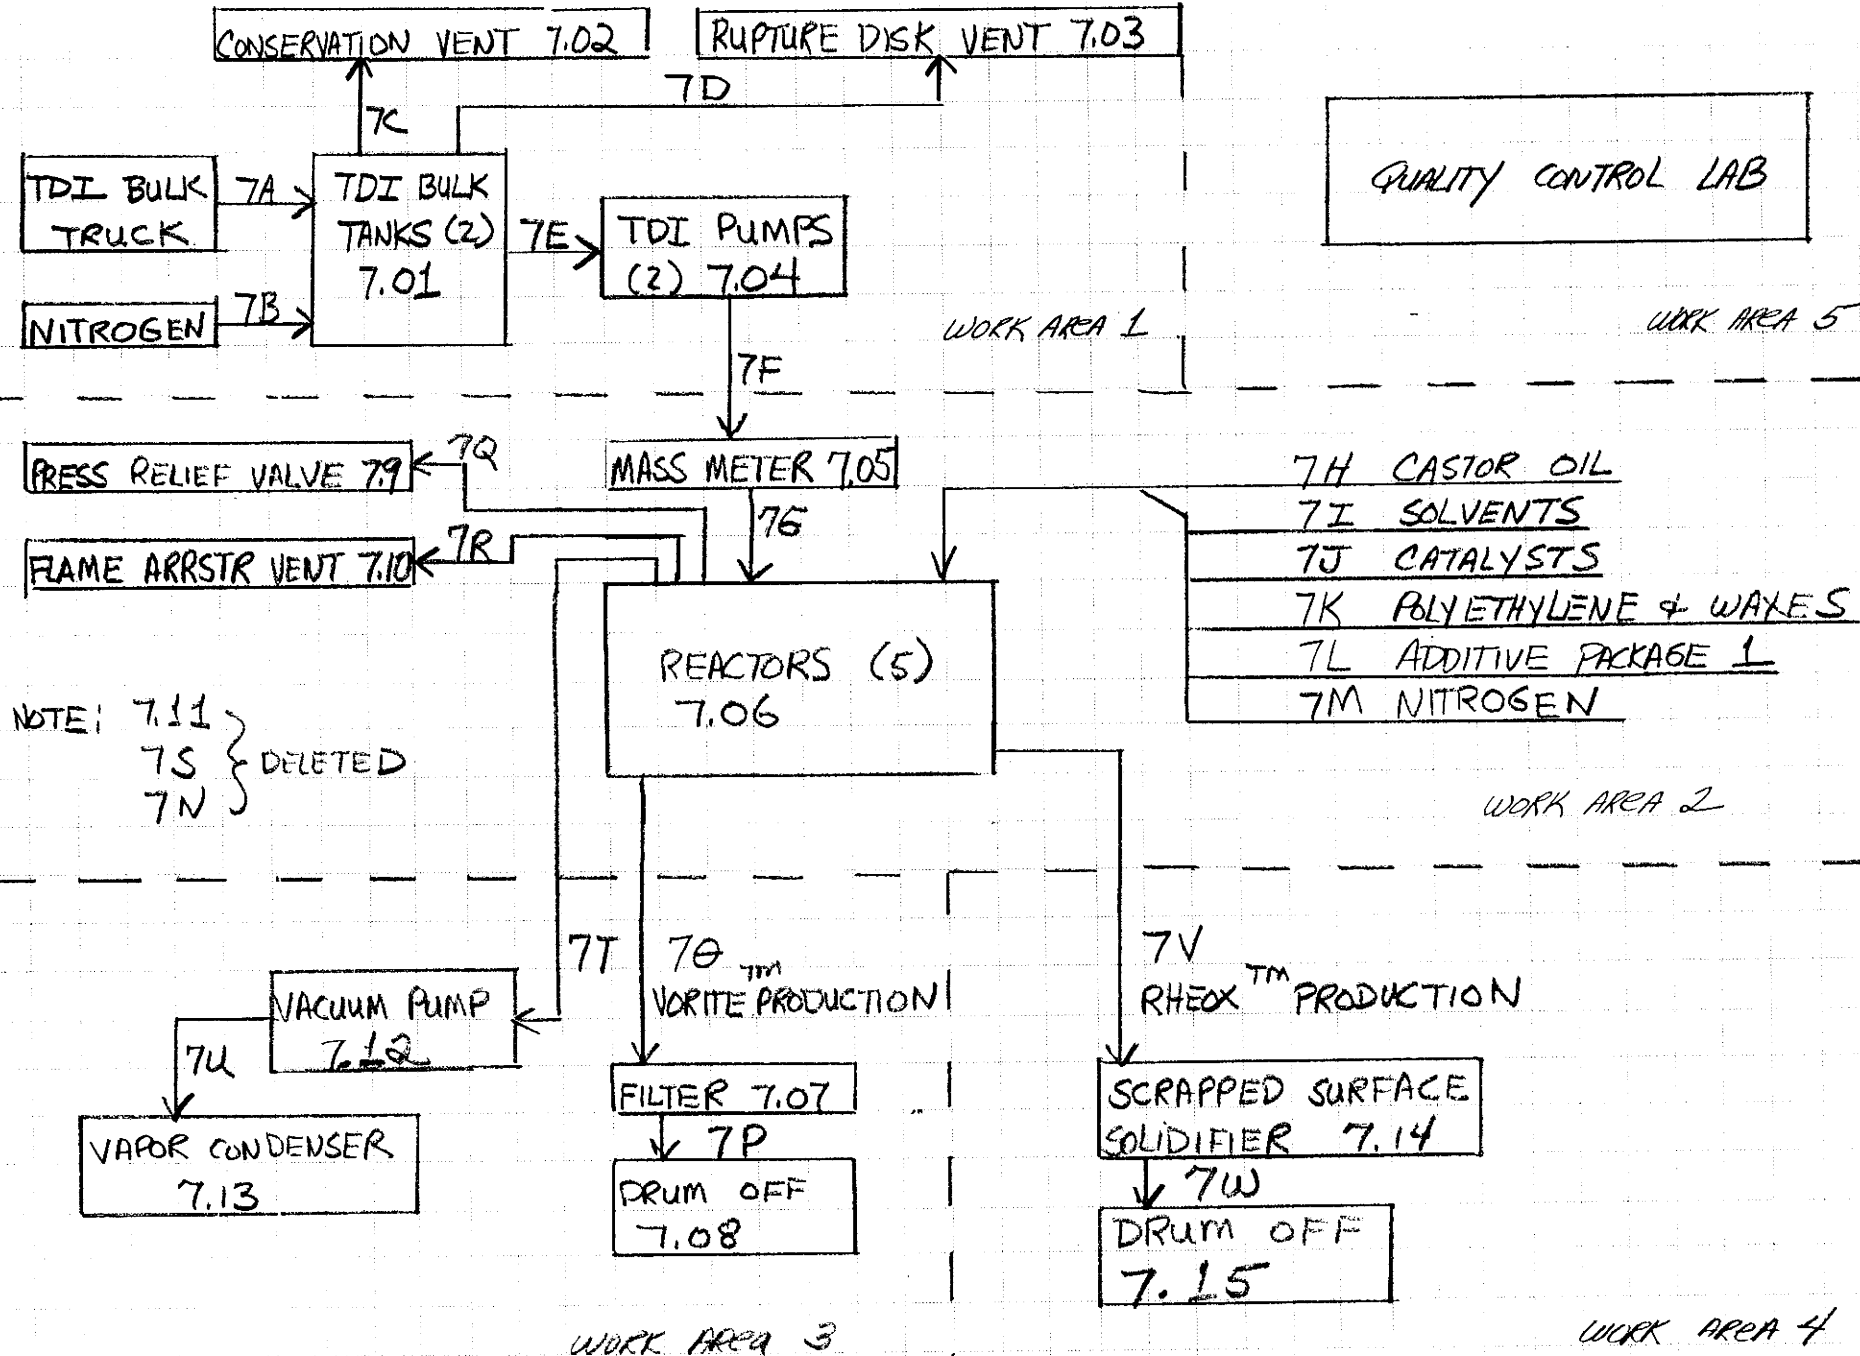 CONSERVATION VENT 7.02
RUPTURE DISK VENT 7.03
7D
7C
QUALITY CONTROL LAB
TDI BULK
TRUCK
7A
TDI BULK
TANKS (2)
7.01
7E
TDI PUMPS
(2) 7.04
NITROGEN
7B
WORK AREA 1
WORK AREA 5
7F
PRESS RELIEF VALVE 7.9
7Q
MASS METER 7.05
7G
7H CASTOR OIL
7I SOLVENTS
7J CATALYSTS
7K POLYETHYLENE & WAXES
7L ADDITIVE PACKAGE 1
7M NITROGEN
FLAME ARRSTR VENT 7.10
7R
REACTORS (5)
7.06
NOTE: 7.11
7S
7N
DELETED
WORK AREA 2
7T
7O
VORITE™ PRODUCTION
7V
RHEOX™ PRODUCTION
VACUUM PUMP
7.12
7U
VAPOR CONDENSER
7.13
FILTER 7.07
7P
DRUM OFF
7.08
SCRAPPED SURFACE
SOLIDIFIER 7.14
7W
DRUM OFF
7.15
WORK AREA 3
WORK AREA 4